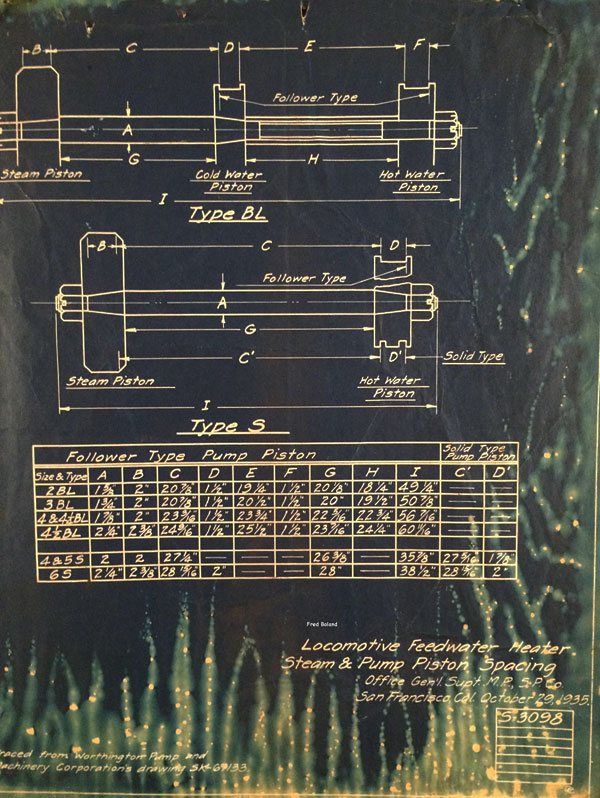 B C D E F
Follower Type
A
G H
Steam Piston Cold Water Piston Hot Water Piston
I
Type BL
B C D
Follower Type
A
G
C' D' Solid Type
Steam Piston Hot Water Piston
I
Type S
Follower Type Pump Piston Solid Type Pump Piston
Size & Type A B C D E F G H I C' D'
2 BL 2" 20⅞" 1½" 19¼" 1½" 20⅛" 18¼" 49¼" — —
3 BL 1¾" 2" 20⅞" 1½" 20½" 1¼" 20" 19½" 50⅞" — —
4 & 4½ BL 1⅞" 2" 23 3/16" 1½" 23¾" 1½" 22 3/16" 22¾" 56 7/16" — —
4½ BL 2¼" 2⅜" 24 9/16" 1½" 25½" 1½" 23 7/16" 24¼" 60 1/16" — —
4 & 5 S 2 2 27¼" — — — 26⅜" — 35⅞" 27 5/16" 1⅞"
6 S 2¼" 2⅜" 28 13/16" 2" — — 28" — 38½" 28 13/16" 2"
Fred Boland
Locomotive Feedwater Heater
Steam & Pump Piston Spacing
Office Gen'l. Supt. M.P., S.P. Co.
San Francisco, Cal. October 29, 1935.
S-3098
raced from Worthington Pump and
achinery Corporation's drawing SK-69133.